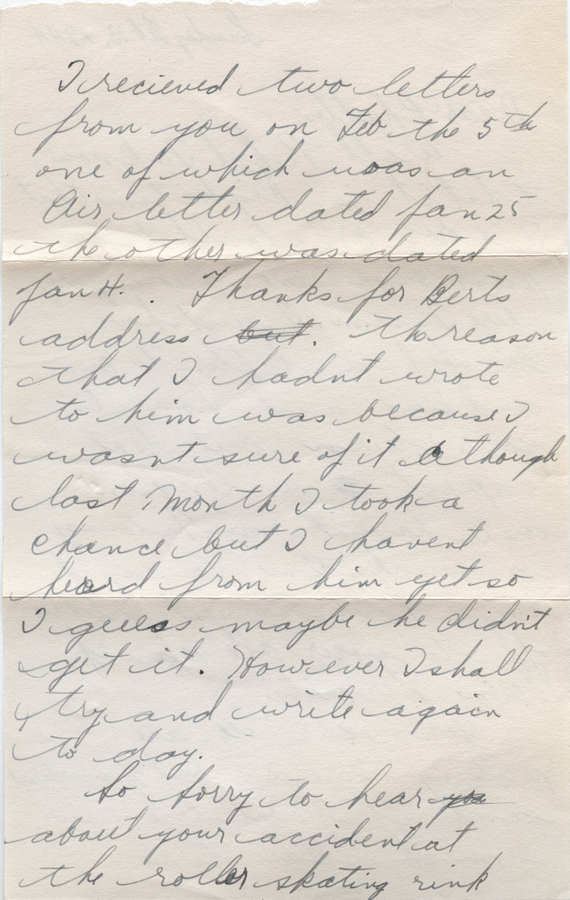 I recieved two letters
from you on Feb the 5th
one of which was an
Air letter dated Jan 25
the other was dated
Jan 4. . Thanks for Berts
address but. the reason
that I hadnt wrote
to him was because I
wasnt sure of it although
last Month I took a
chance but I havent
heard from him yet so
I guess maybe he didn't
get it. However I shall
try and write again
to day.
So Sorry to hear you
about your accident at
the roller skating rink